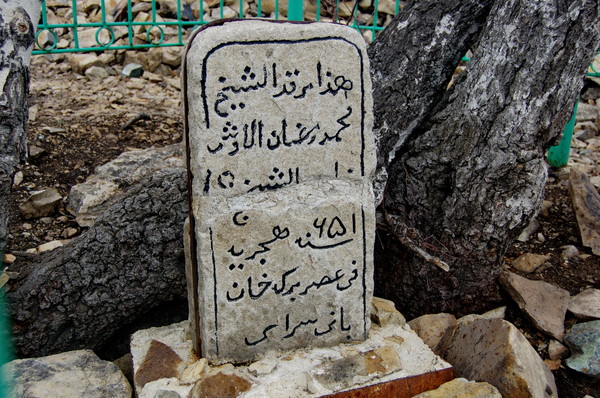 هذا مرقد الشيخ
محمد رمضان الاوشى
الشيخ
٦٥١ سنه هجريه
فى عصر بركه خان
بانى سراى